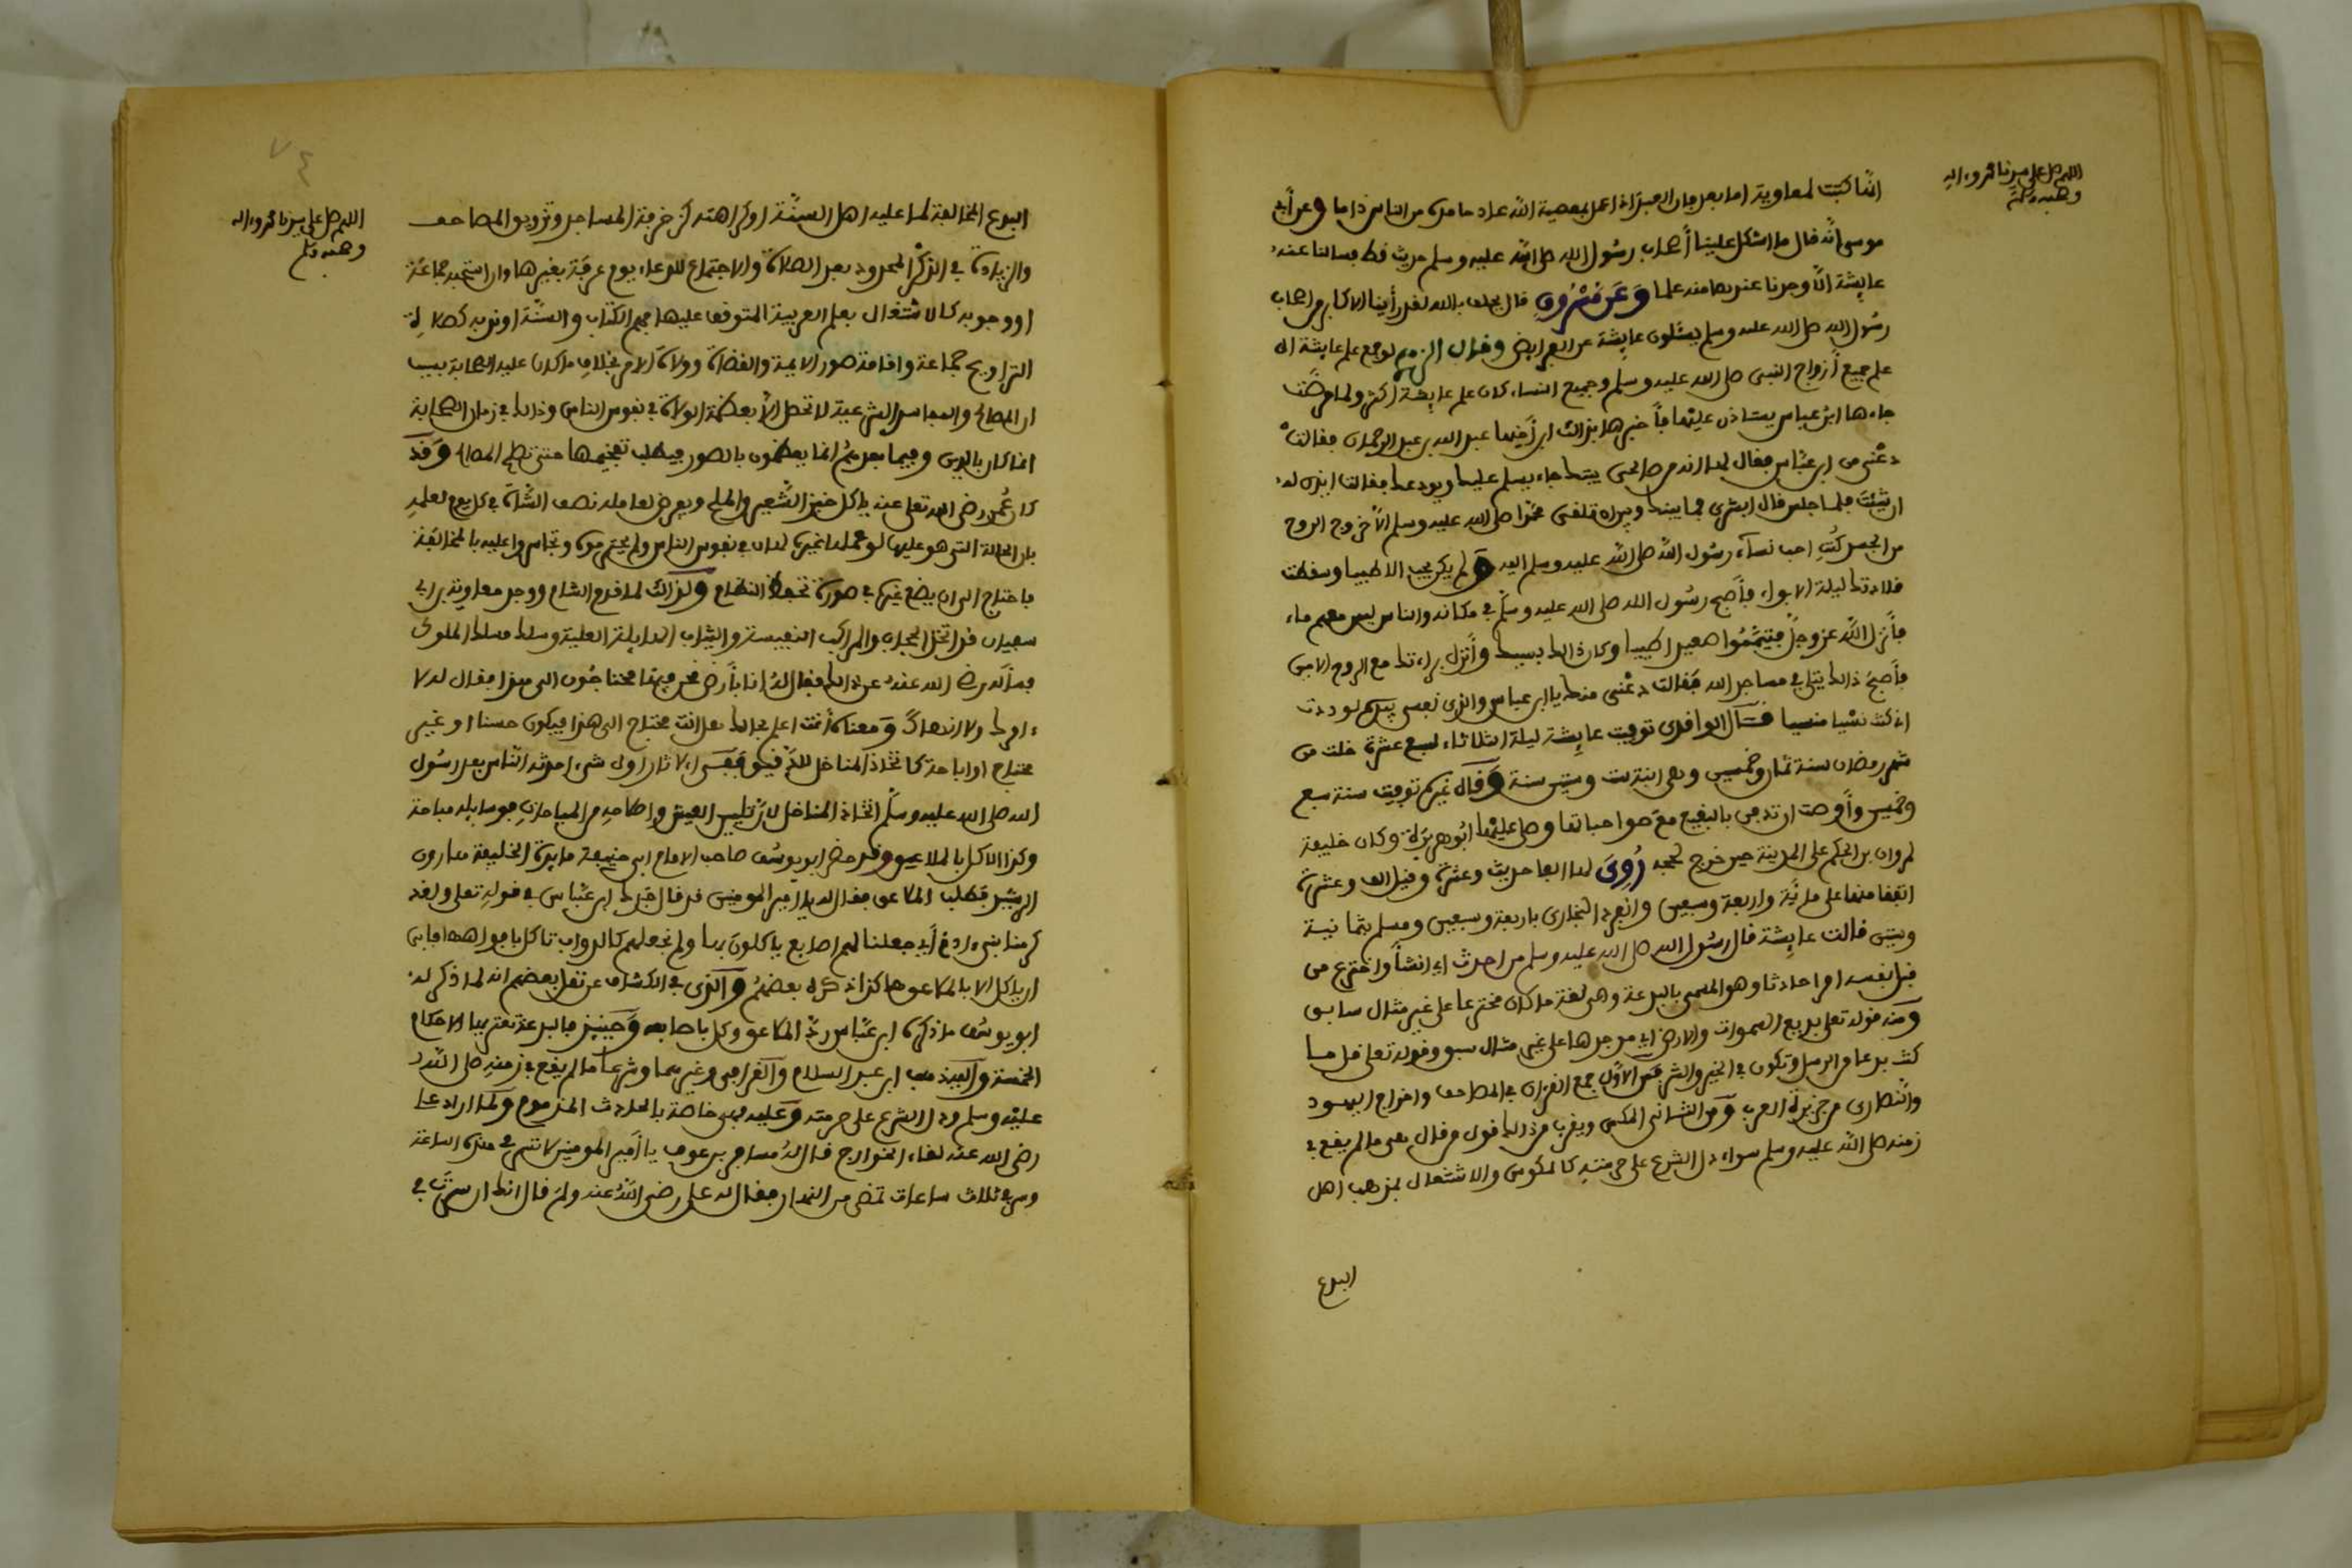 اللهم صل على سيدنا محمد وءاله
وصحبه وسلم
أنها كتبت لمعاوية اما بعد فان العبد اذا عمل بمعصية الله عاد حامده من الناس ذاما وعن أبي
موسى أنه قال ما اشكل علينا أصحاب رسول الله صلى الله عليه وسلم حديث قط فسالنا عنه
عايشة الا وجدنا عندها منه علما وعن مسروق قال نحلف بالله لقد رأينا الاكابر من اصحاب
رسول الله صلى الله عليه وسلم يسئلون عايشة عن الفرايض وقال الزهري لو جمع علم عايشة الى
علم جميع أزواج النبي صلى الله عليه وسلم وجميع النساء كان علم عايشة اكثر ولما مرضت
جاءها ابن عباس يستاذن عليها فأخبرها بذالك ابن أخيها عبد الله بن عبد الرحمان فقالت
دعني من ابن عباس فقال لها انه من صالحي بنيك جاء يسلم عليك ويودعك فقالت ايذن له
ان شئت فلما جلس قال ابشري فما بينك وبين ان تلقى محمدا صلى الله عليه وسلم الا خروج الروح
من الجسد كنت احب نساء رسول الله صلى الله عليه وسلم اليه ولم يكن يحب الا طيبا وسقطت
قلادتك ليلة الابواء فأصبح رسول الله صلى الله عليه وسلم في مكانه والناس ليس معهم ماء
فأنزل الله عز وجل فتيمموا صعيدا طيبا وكان ذالك بسببك وأنزل براءتك مع الروح الامين
فأصبح ذالك يتلى في مساجد الله فقالت دعني منك يا ابن عباس والذي نفسي بيده لوددت
اني كنت نسيا منسيا قال الواقدي توفيت عايشة ليلة الثلاثاء لسبع عشرة خلت من
شهر رمضان سنة ثمان وخمسين وهي ابنة ست وستين سنة وقال غيره توفيت سنة سبع
وخمسين وأوصت ان تدفن بالبقيع مع صواحباتها وصلى عليها أبو هريرة وكان خليفة
لمروان بن الحكم على المدينة حين خرج لحجه روى لها الفا حديث وعشرة وقيل الف وعشرة
اتفقا منها على ماية واربعة وسبعين وانفرد البخاري باربعة وسبعين ومسلم بثمانية
وستين قالت عايشة قال رسول الله صلى الله عليه وسلم من احدث اي انشأ واخترع من
قبل نفسه امرا حادثا وهو المسمى بالبدعة وهي لغة ما كان مخترعا على غير مثال سابق
ومنه قوله تعلى بديع السموات والارض اي موجدها على غير مثال سبق وقوله تعلى قل ما
كنت بدعا من الرسل وتكون في الخير والشر فمن الأول جمع القرءان في المصاحف واخراج اليهود
والنصارى من جزيرة العرب ومن الثاني المكس ويقرب من ذالك قول من قال هي ما لم يقع في
زمنه صلى الله عليه وسلم سواء دل الشرع على حرمته كالمكوس والاشتغال بمذهب اهل
البدع
اللهم صل على سيدنا محمد وءاله
وصحبه وسلم
٧٤
البدع المخالفة لما عليه اهل السنة او كراهته كزخرفة المساجد وتزويق المصاحف
والزيادة في الذكر المحدود بعد الصلاة والاجتماع للدعاء يوم عرفة بغيرها وان استحبه جماعة
او وجوبه كالاشتغال بعلم العربية المتوقف عليها فهم الكتاب والسنة او ندبه كصلاة
التراويح جماعة واقامة صور الايمة والقضاة وولاة الامر بخلاف ما كان عليه الصحابة بسبب
ان المصالح والمقاصد الشرعية لا تحصل الا بعظمة الولاة في نفوس الناس وذالك في زمان الصحابة
انما كان بالدين وفيما بعدهم انما يعظمون بالصور فيطلب تفخيمها حتى تحصل المصالح وقد
كان عمر رضي الله تعلى عنه ياكل خبز الشعير والملح ويفرض لعامله نصف الشاة في كل يوم لعلمه
بان الحالة التي هو عليها لو عملها غيره لهان في نفوس الناس ولم يحترموه وتجاسروا عليه بالمخالفة
فاحتاج الى ان يضع غيره في صورة تحفظ النظام ولذالك لما قدم الشام ووجد معاوية بن ابي
سفيان قد اتخذ الحجاب والمراكب النفيسة والثياب الهايلة العلية وسلك مسلك الملوك
فسأله رضي الله عنه عن ذالك فقال له انا بأرض نحن فيها محتاجون الى هذا فقال له لا
ءامرك ولا انهاك ومعناه أنت اعلم بحالك هل انت محتاج الى هذا فيكون حسنا او غير
محتاج او اباحة كاتخاذ المناخل للدقيق ففي الاثار اول شيء احدثه الناس بعد رسول
الله صلى الله عليه وسلم اتخاذ المناخل لان تليين العيش واصلاحه من المباحات فوسايله مباحة
وكذا الاكل بالملاعق وقد حضر ابو يوسف صاحب الامام ابي حنيفة مايدة الخليفة هارون
الرشيد فطلب الملاعق فقال له يا امير المومنين قد قال جدك ابن عباس في قوله تعلى ولقد
كرمنا بني ءادم أي جعلنا لهم اصابع ياكلون بها ولم نجعلهم كالدواب تاكل بافواهها فابى
ان ياكل الا بالملاعق هاكذا ذكره بعضهم والذي في الكشاف عن نقل بعضهم انه لما ذكر له
ابو يوسف ما ذكره ابن عباس رد الملاعق وكل باصابعه وحينئذ فالبدعة تعتريها الاحكام
الخمسة واليه ذهب ابن عبد السلام والقرافي وغيرهما وشرعا ما لم يقع في زمنه صلى الله
عليه وسلم ودل الشرع على حرمته وعليه فهي خاصة بالحادث المذموم ولما اراد علي
رضي الله عنه لقاء الخوارج قال له مسافر بن عوف يا أمير المومنين لا تسر في هذه الساعة
وسر في ثلاث ساعات تمضي من النهار فقال له علي رضي الله عنه ولم قال انك ان سرت في